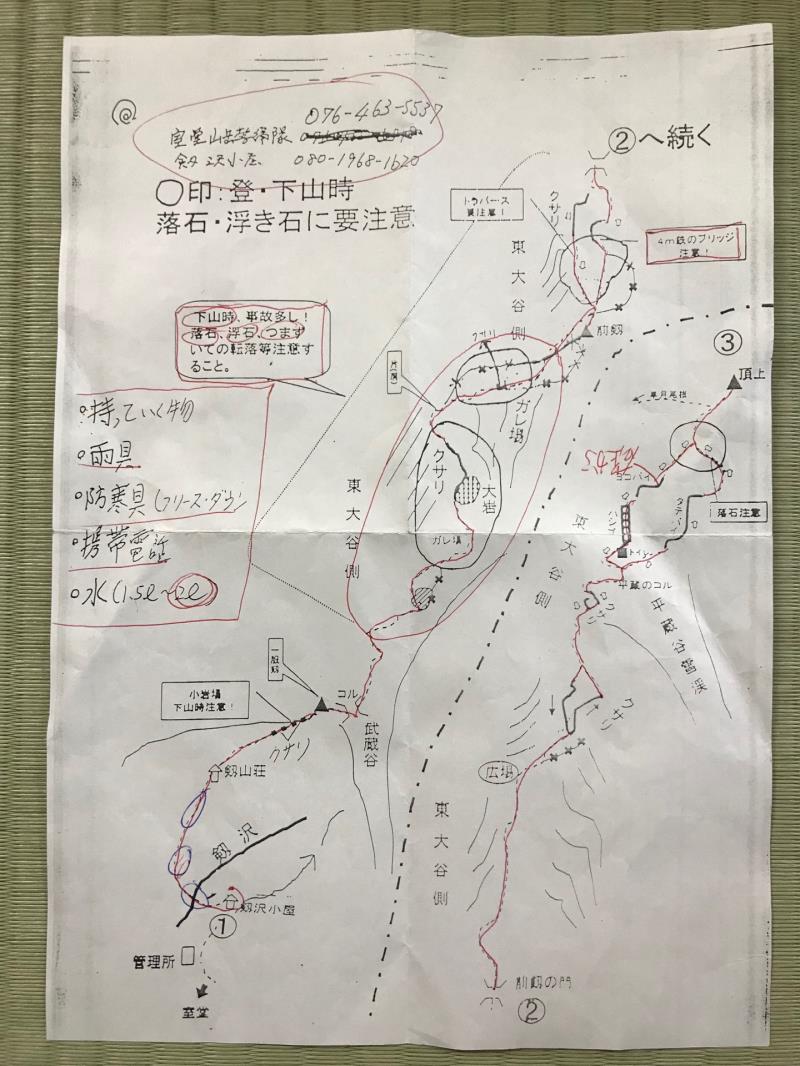 076-463-5537
室堂山岳警備隊
剱沢小屋 080-1968-1620
○印:登・下山時
落石・浮き石に要注意
②へ続く
クサリ
トラバース
要注意!
4m鉄のブリッジ
注意!
東大谷側
下山時、事故多し!
落石、浮石、つまず
いての転落等注意す
ること。
前剱
クサリ
ガレ場
③
頂上
早月尾根
○持っていく物
○雨具
○防寒具(フリース・ダウン
○携帯電話
○水(1.5ℓ~2ℓ
クサリ
大岩
ガレ場
東大谷側
ヨコバイ
タテバイ
落石注意
ハシゴ
トイレ
東大谷側
平蔵のコル
クサリ
平蔵谷雪渓
一服剱
コル
小岩場
下山時注意!
クサリ
武蔵谷
クサリ
剱山荘
広場
剱沢
東大谷側
剱沢小屋
①
管理所
室堂
前剱の門
②